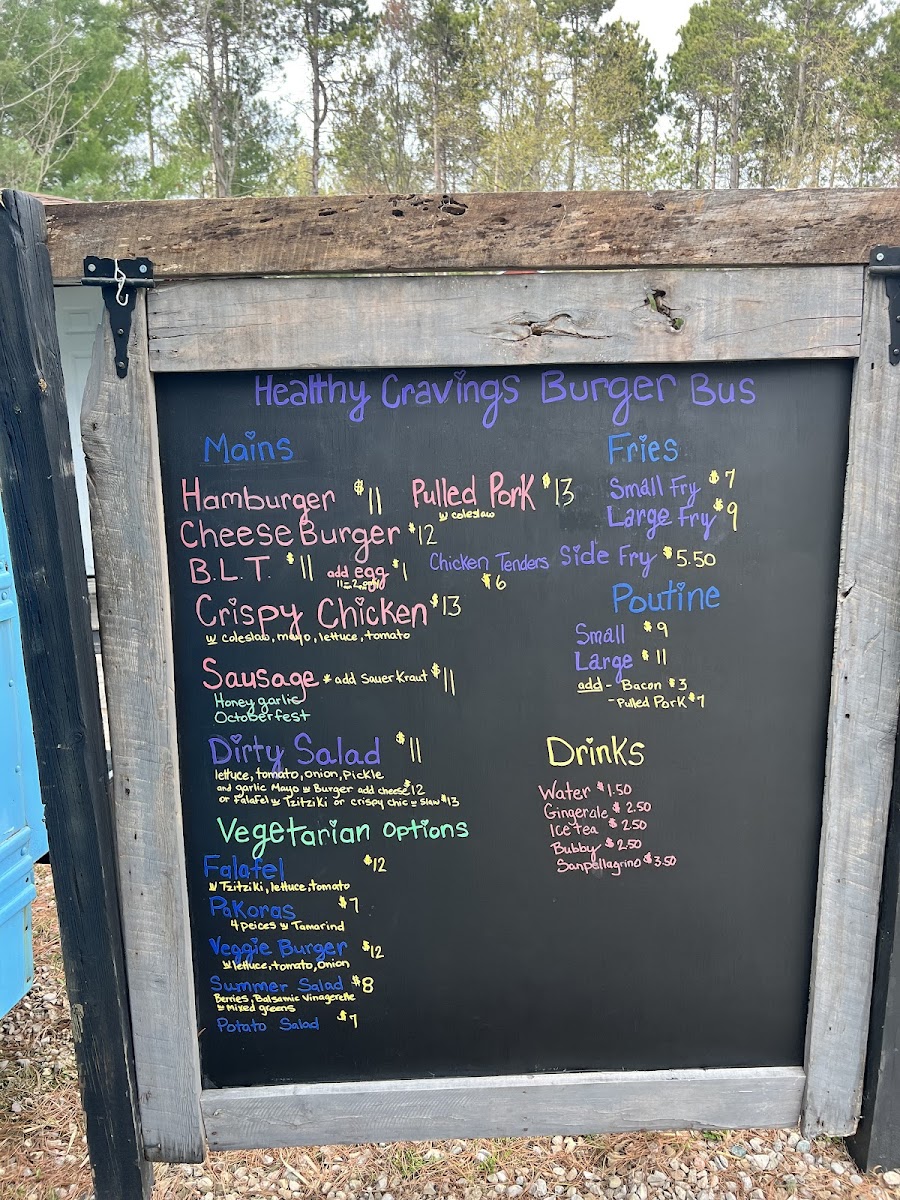 Healthy Cravings Burger Bus
Mains
Hamburger $11
Pulled Pork $13
w coleslaw
Cheese Burger $12
B.L.T. $11 add egg $1
Chicken Tenders
$6
Crispy Chicken $13
w coleslaw, mayo, lettuce, tomato
Sausage * add Sauer Kraut $11
Honey garlic
Octoberfest
Dirty Salad $11
lettuce, tomato, onion, pickle
and garlic Mayo w Burger add cheese $12
or Falafel w Tzitziki or crispy chic w slaw $13
Vegetarian Options
Falafel $12
w Tzitziki, lettuce, tomato
Pakoras $7
4 peices w Tamarind
Veggie Burger $12
w lettuce, tomato, onion
Summer Salad $8
Berries, Balsamic Vinagerette
w Mixed greens
Potato Salad $7
Fries
Small Fry $7
Large Fry $9
Side Fry $5.50
Poutine
Small $9
Large $11
add - Bacon $3
- Pulled Pork $7
Drinks
Water $1.50
Gingerale $2.50
Ice tea $2.50
Bubby $2.50
Sanpellagrino $3.50